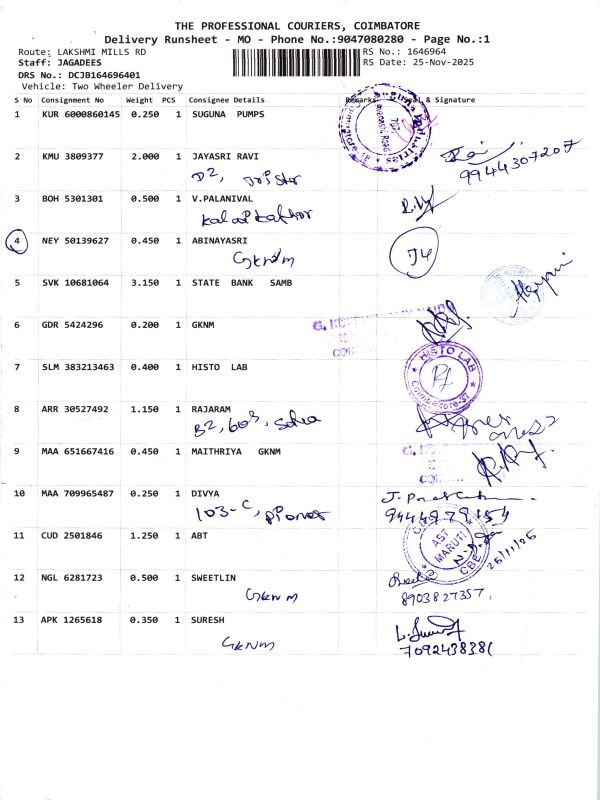 THE PROFESSIONAL COURIERS, COIMBATORE
Delivery Runsheet - MO - Phone No.:9047080280 - Page No.:1
Route: LAKSHMI MILLS RD RS No.: 1646964
Staff: JAGADEES RS Date: 25-Nov-2025
DRS No.: DCJB164696401
Vehicle: Two Wheeler Delivery
S No Consignment No Weight PCS Consignee Details Remarks Seal & Signature
1 KUR 6000860145 0.250 1 SUGUNA PUMPS
2 KMU 3809377 2.000 1 JAYASRI RAVI
D2,
9944307207
3 BOH 5301301 0.500 1 V.PALANIVAL
4 NEY 50139627 0.450 1 ABINAYASRI
GKNM J4
5 SVK 10681064 3.150 1 STATE BANK SAMB
6 GDR 5424296 0.200 1 GKNM
7 SLM 383213463 0.400 1 HISTO LAB
HISTO LAB
8 ARR 30527492 1.150 1 RAJARAM
B2, 603,
9 MAA 651667416 0.450 1 MAITHRIYA GKNM
10 MAA 709965487 0.250 1 DIVYA
103-C,
11 CUD 2501846 1.250 1 ABT
AST
MARUTI
CBE
25/11/25
12 NGL 6281723 0.500 1 SWEETLIN
GKNM 8903827357
13 APK 1265618 0.350 1 SURESH
GKNM 7092438381